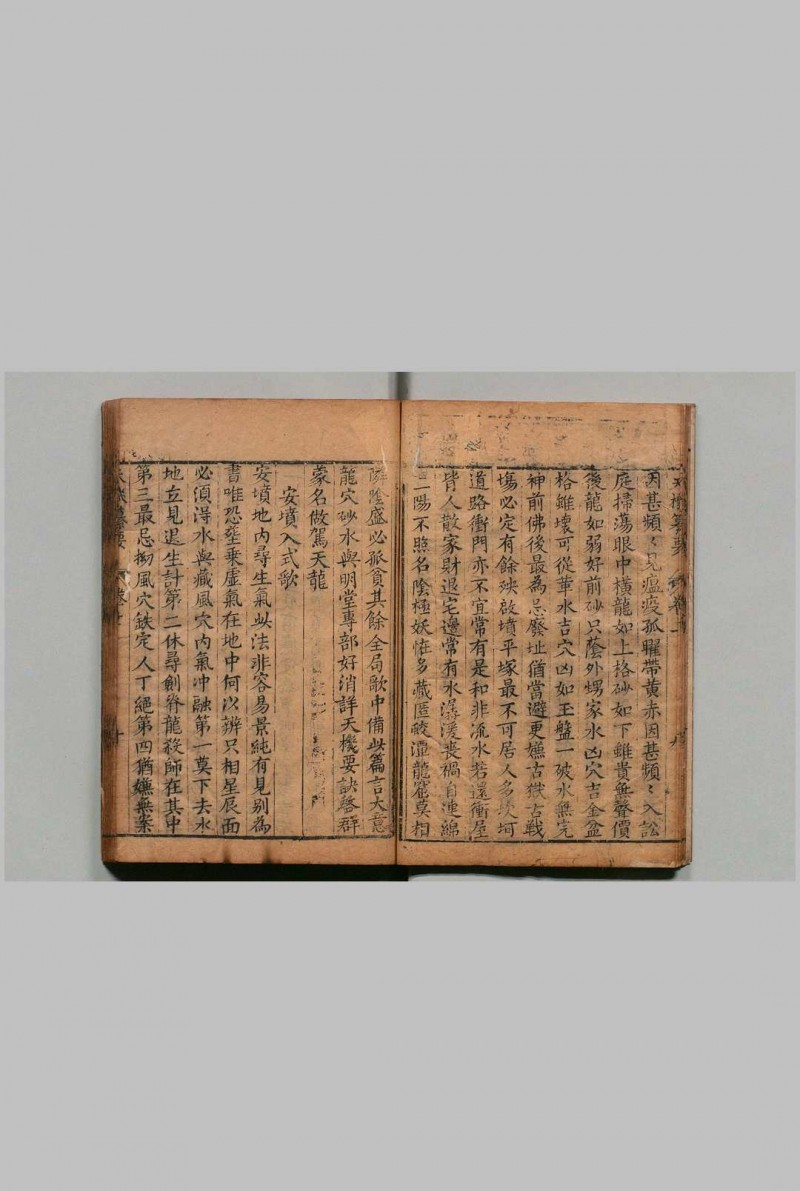 因甚頻〻見瘟疫孤曜帶黃赤因甚頻〻入訟
庭掃蕩眼中橫龍如上格砂如下雖貴無聲價
後龍如弱好前砂只蔭外甥家水凶穴吉金盆
格雖壞可從革水吉穴凶如玉盤一破水無完
神前佛後最為忌廢址猶當避更嫌古獄古戰
塲必定有餘殃啟墳平塚最不可居人多坎坷
道路衝門亦不宜常有是和非流水若還衝屋
皆人散家財退宅邊常有水潺湲喪禍自連綿
三陽不照名陰極妖怪多藏匿 龍窟莫相
隣陰盛必孤貧其餘全局歌中備此篇言大意
龍穴砂水與明堂專部好消詳天機要訣啓群
蒙名做駕天龍
安墳入式歌
安墳地內尋生氣此法非容易景純有見別為
書唯恐塟乗虛氣在地中何以辨只相星辰面
必須淂水與藏風穴內氣冲融第一莫下去水
地立見退生計第二休尋劍脊龍殺師在其中
第三最忌拗風穴鉄定人丁絕第四猶嫌無案